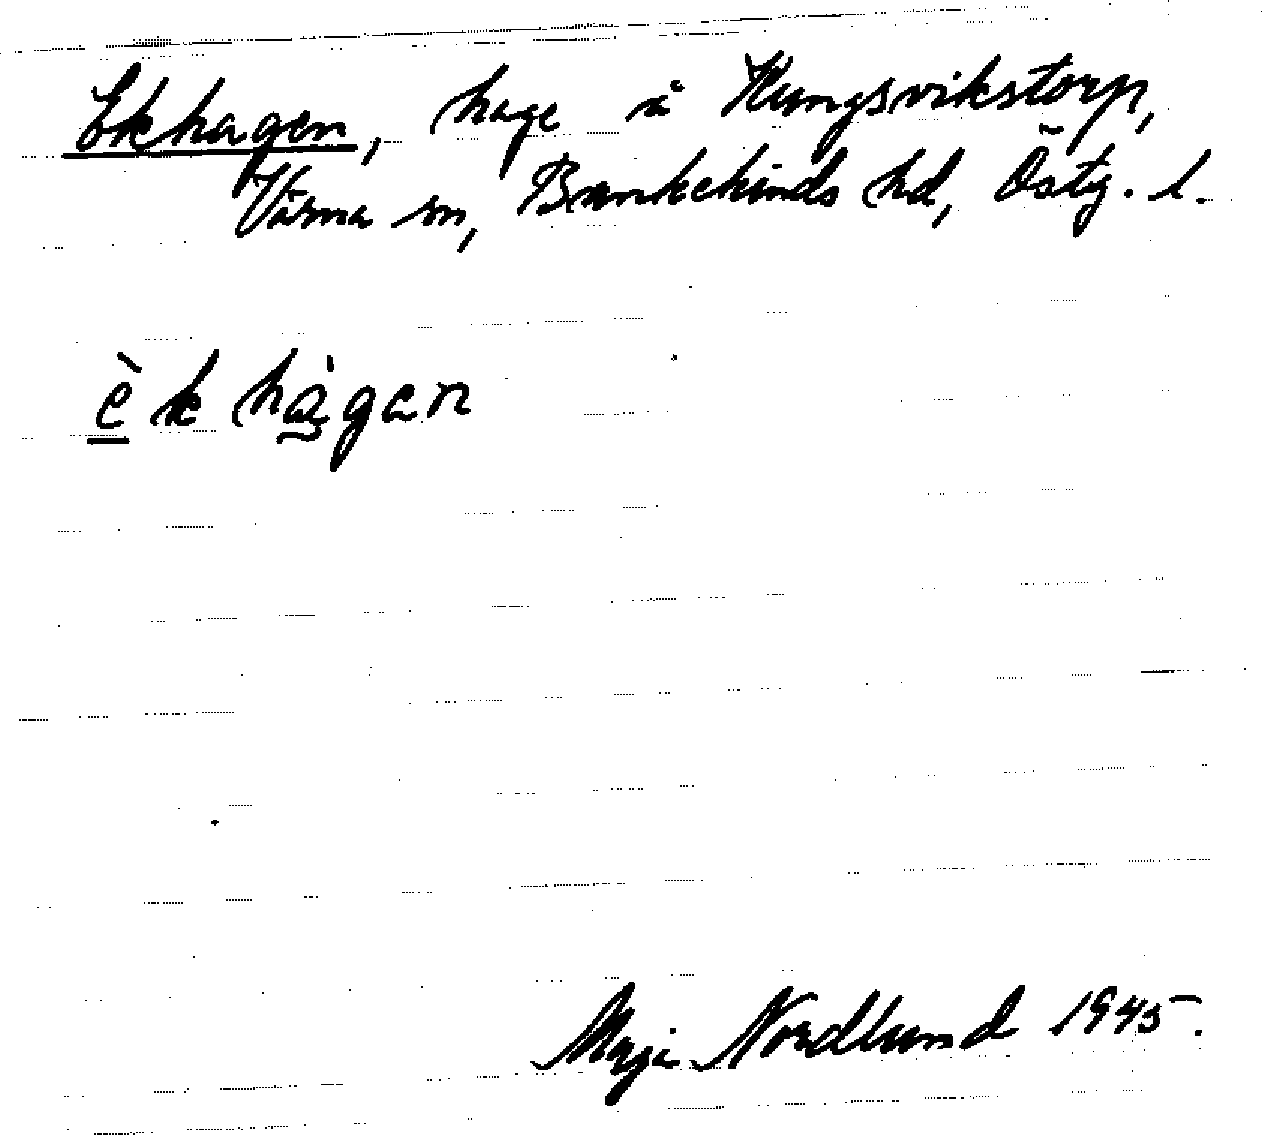 Ekhagen, hage å Kungsvikstorp,
Värna sn, Bankekinds hd, Östg. l.
èk hàgen
Maja Nordlund 1945.